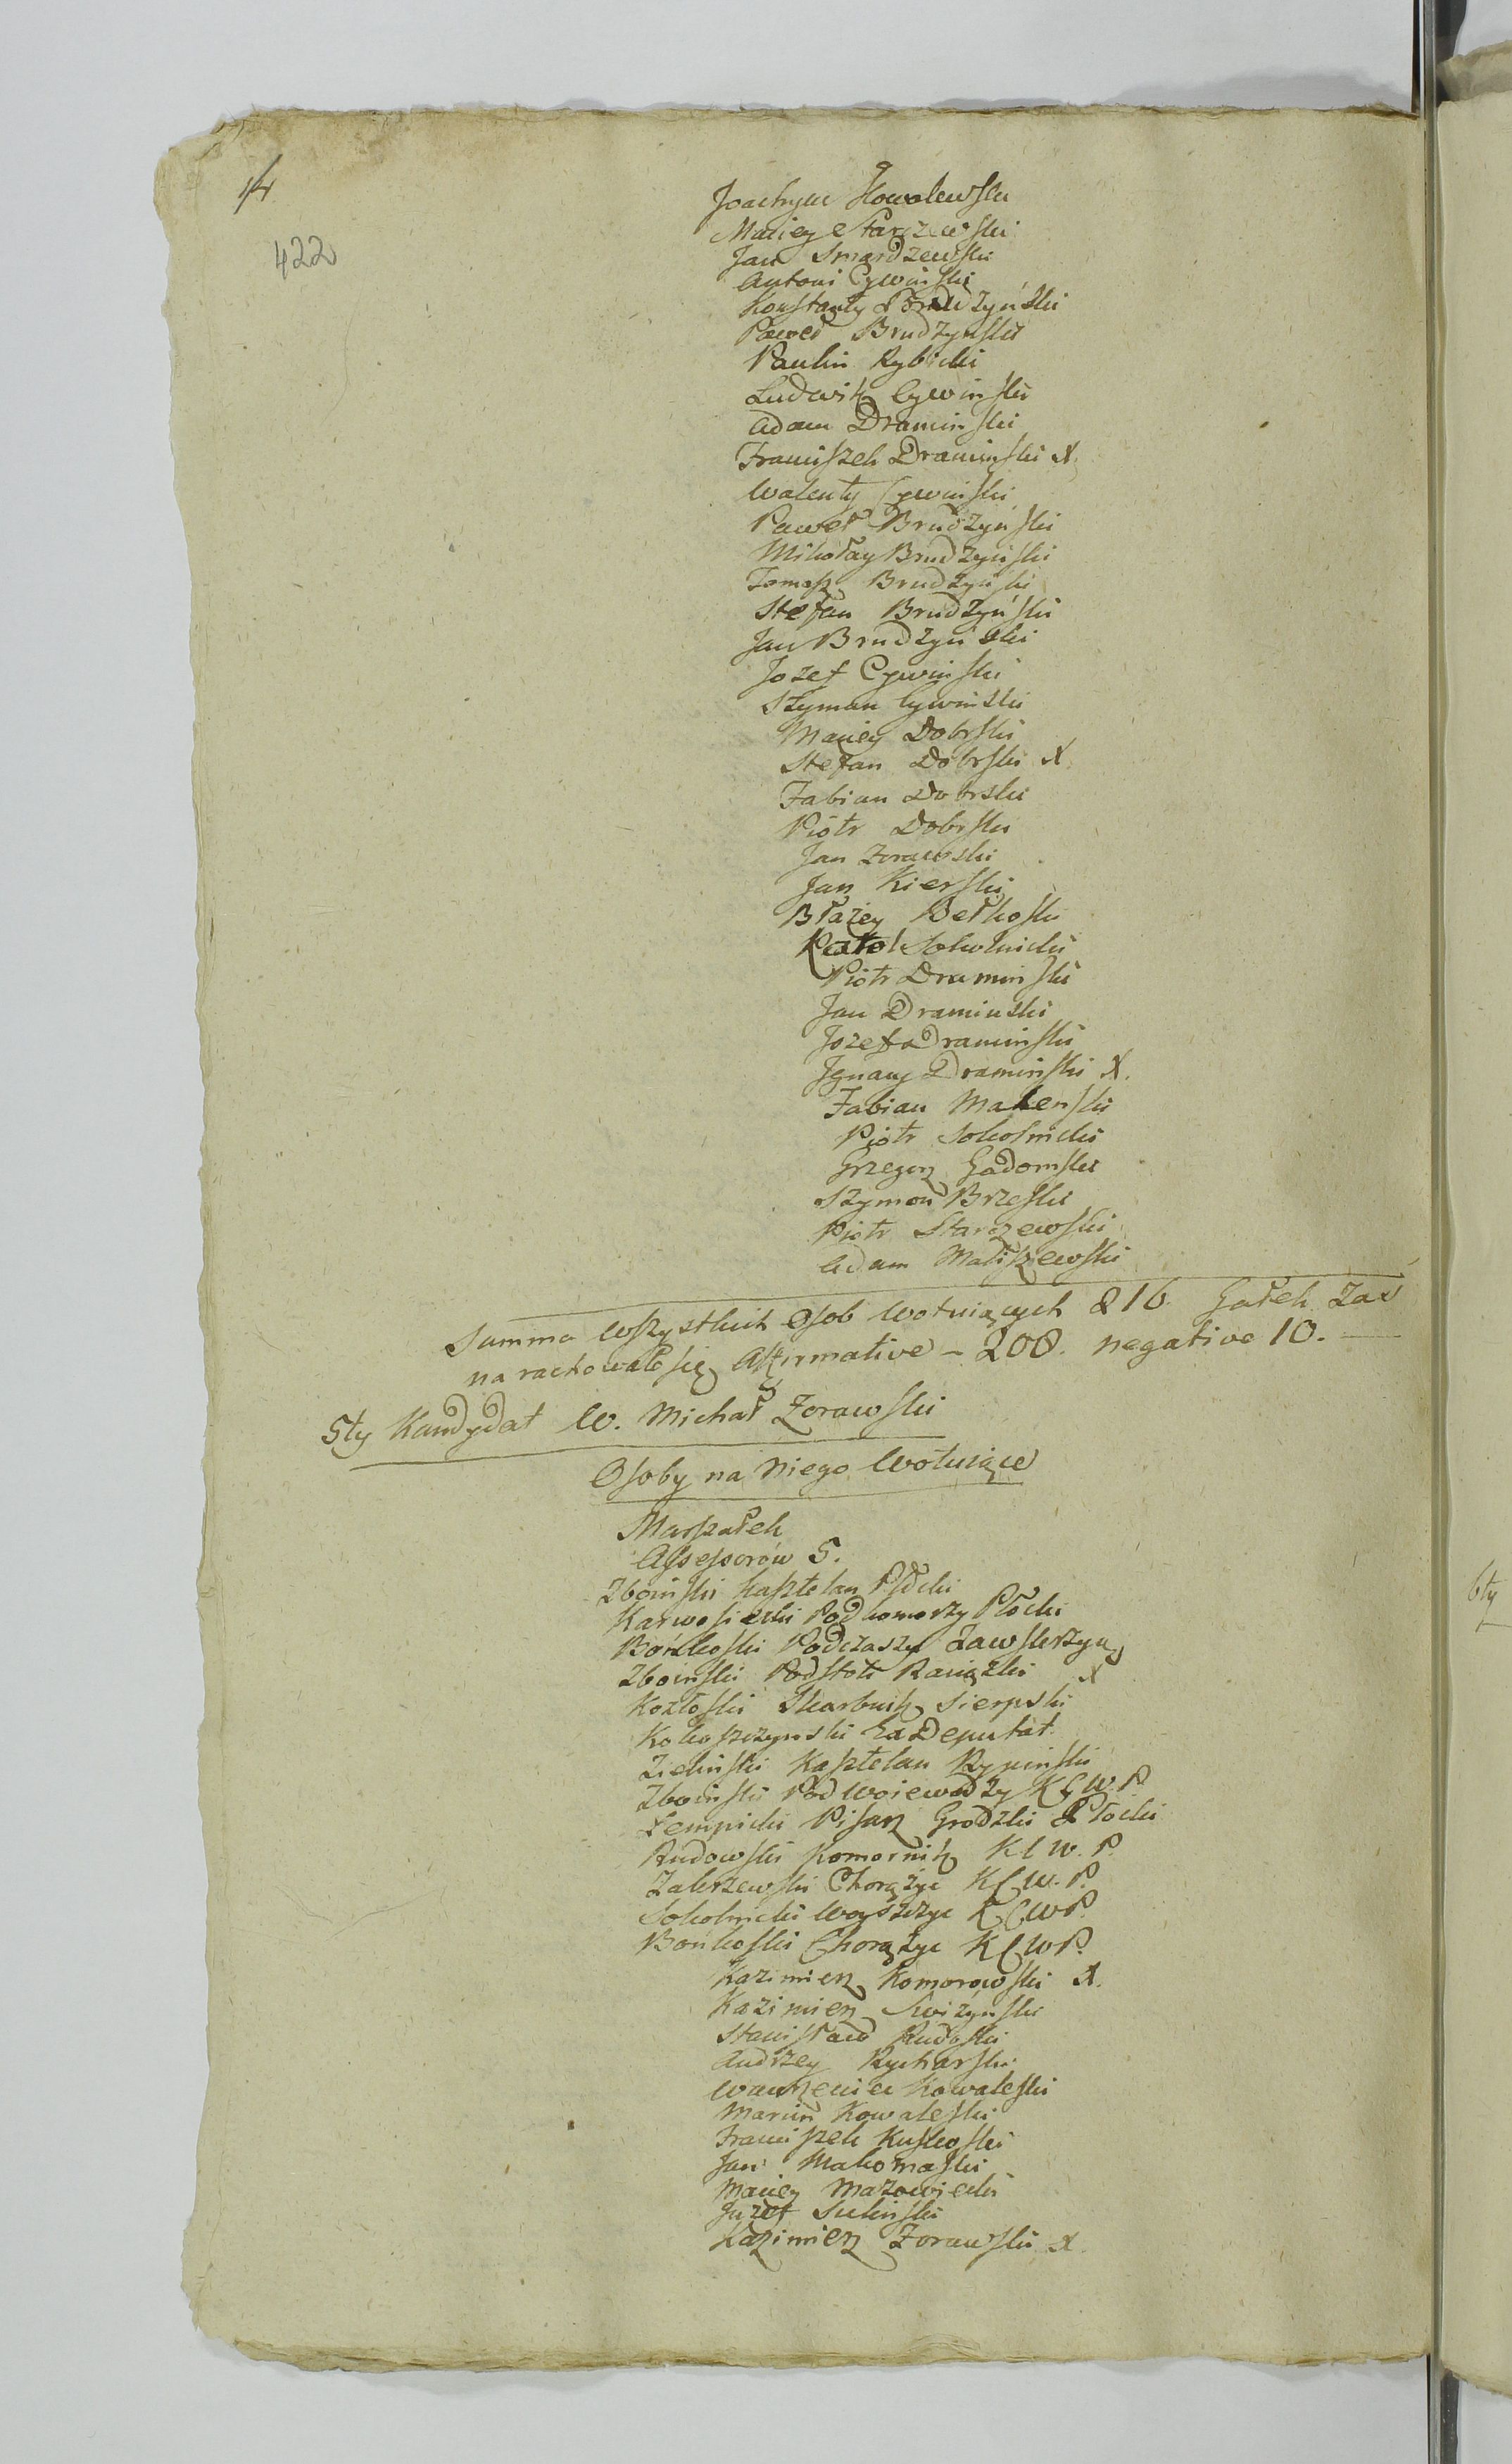 14
422
Joachym Kowalewski
Maciey Starzewski
Jan Smardzewski
Antoni Cywiński
Konstanty Brudzyński
Paweł Brudzyński
Paulin Rybicki
Ludwik Cywinski
Adam Draminski
Franciszek Draminski X
Walenty Cywinski
Paweł Brudzyński
Mikołay Brudzyński
Tomasz Brudzyński
Stefan Brudzyński
Jan Brudzyński
Jozef Cywinski
Szyman Cywinski
Maciey Dobrski
Stefan Dobrski X
Fabian Dobrski
Piotr Dobrski
Jan Zorawski
Jan Kierski
Błażey Bełkoski
Karol Sokolnicki
Piotr Draminski
Jan Draminski
Jozef Draminski
Jgnacy Draminski X.
Fabian Makenski
Piotr Sokolnicki
Grzegorz Gadomski
Szymon Brzeski
Piotr Starzewski
Adam Maliszewski
Summa wszystkich Osob wotuiących 216. Gałek zaś
narachowało się Affirmative – 208. negative 10.
5ty Kandydat W. Michał Zorawski
Osoby na niego Wotuiące
Marszałek
Assessorów 5.
Zboinski Kasztelan Płocki
Karwosiecki Podkomorzy Płocki
Bońkoski Podczaszy Zawskrzyń
Zboinski Podstoli Raciązki X
Kozłoski Skarbnik Sierpski
Kokoszczynski Ex Deputat
Zielinski Kasztelan Rypinski
Zboinski Podwoiewodzy KCW.P.
Łempicki Pisarz Grodzki Płocki
Rudowski Komornik KCW.P.
Zakrzewski Chorążyc KCW.P.
Sokolnicki Woyszczyc KCWP.
Bońkoski Chorążyc KCWP.
Kazimierz Komorowski X.
Kazimierz Swizyński
Stanisław Rudoski
Andrzey Rycharski
Wawrzeniec Kowaleski
Marcin Kowaleski
Franciszek Kuskoski
Jan Makomaski
Maciey Mazowiecki
Juzef Sulinski
Kazimierz Zorawski X.
6ty